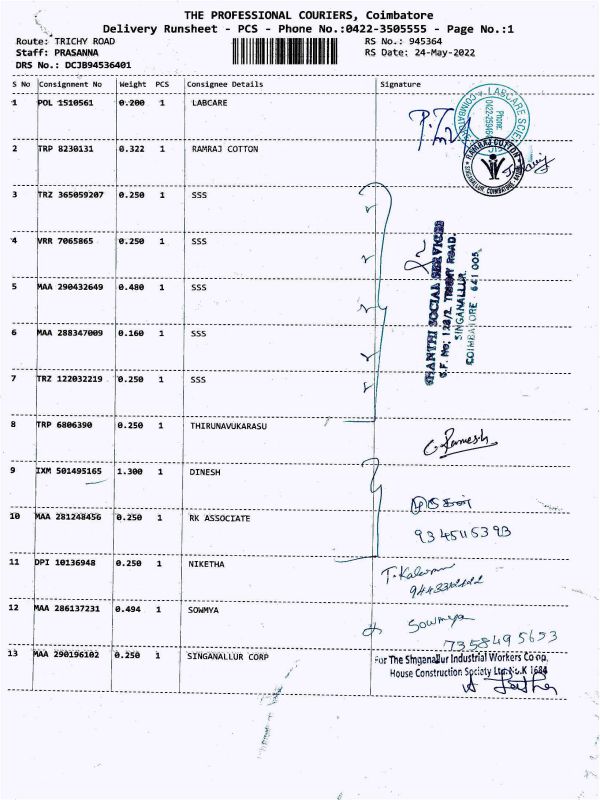 THE PROFESSIONAL COURIERS, Coimbatore
Delivery Runsheet - PCS - Phone No.:0422-3505555 - Page No.:1
Route: TRICHY ROAD RS No.: 945364
Staff: PRASANNA RS Date: 24-May-2022
DRS No.: DCJB94536401
S No Consignment No Weight PCS Consignee Details Signature
1 POL 1510561 0.200 1 LABCARE
2 TRP 8230131 0.322 1 RAMRAJ COTTON
3 TRZ 365059207 0.250 1 SSS
4 VRR 7065865 0.250 1 SSS
5 MAA 290432649 0.480 1 SSS
6 MAA 288347009 0.160 1 SSS
7 TRZ 122032219 0.250 1 SSS
8 TRP 6806390 0.250 1 THIRUNAVUKARASU
9 IXM 501495165 1.300 1 DINESH
10 MAA 281248456 0.250 1 RK ASSOCIATE
11 DPI 10136948 0.250 1 NIKETHA
12 MAA 286137231 0.494 1 SOWMYA
13 MAA 290196102 0.250 1 SINGANALLUR CORP
LABCARE
Phone:
RAMRAJ COTTON
SINGANALLUR, COIMBATORE
SHANTHI SOCIAL SERVICES
S.F. No; 128/2, TRICHY ROAD.
SINGANALLUR.
COIMBATORE - 641 005.
C. Ramesh
9345115393
Sowmya
7358495653
For The Singanallur Industrial Workers Co.op.
House Construction Society Ltd.No.K 1684